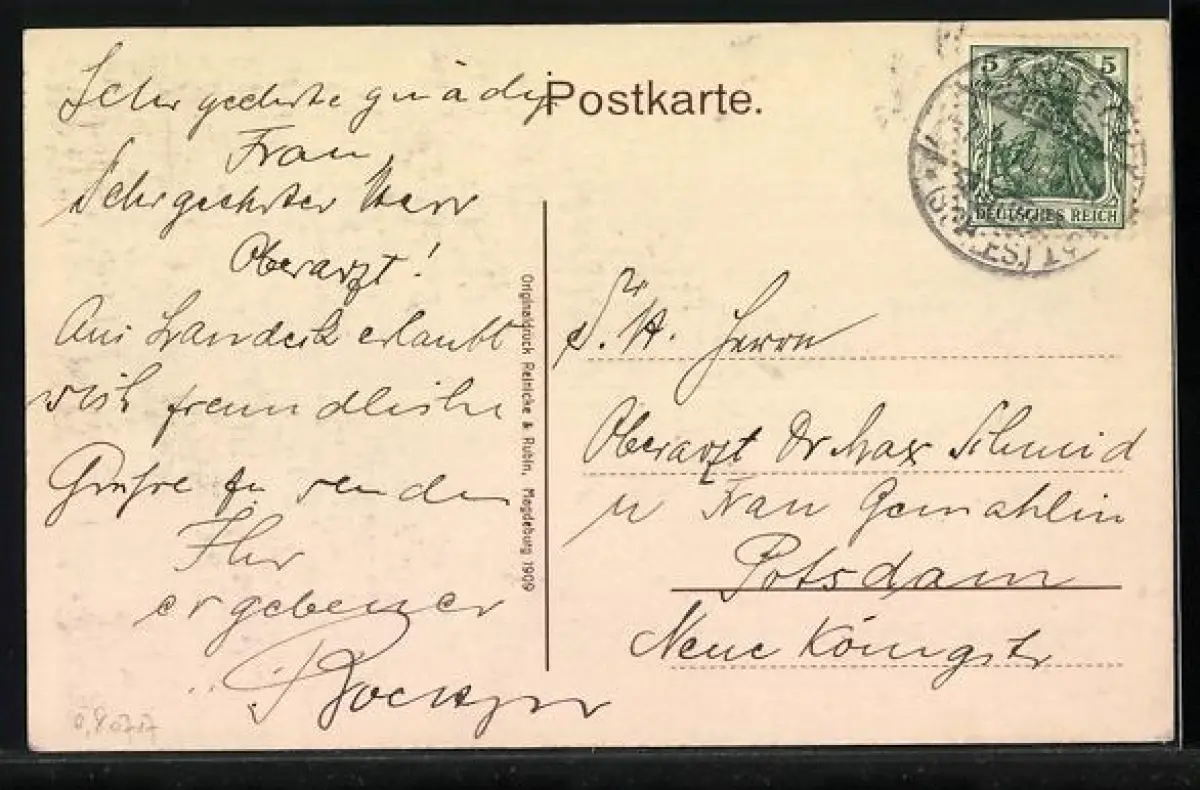 Postkarte.
5 5
DEUTSCHES REICH
Sehr geehrte gnädige
Frau,
Sehr geehrter Herr
Oberarzt!
Aus Landeck erlaubt
sich freundliche
Grüsse zu senden
Ihr
ergebener
Originaldruck Reinicke & Rubin, Magdeburg 1909
S. H. Herrn
Oberarzt Dr Max Schmid
u Frau Gemahlin
Potsdam
Neue Königstr